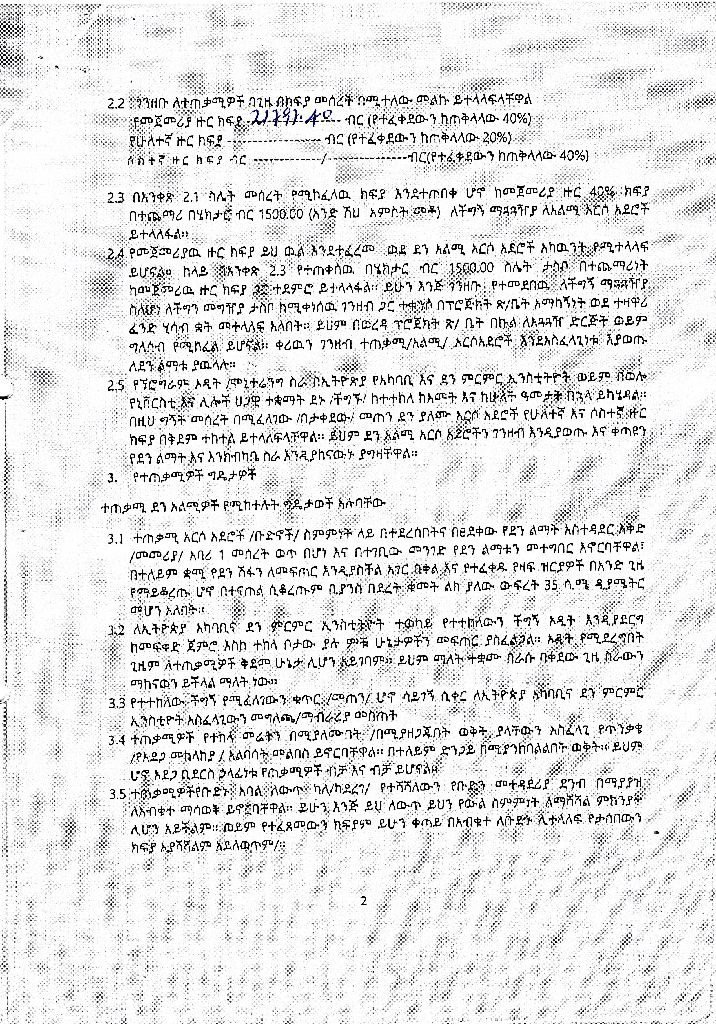 2.2 ገንዘቡ ለተጠቃሚዎች በጊዜ በክፍያ መሰረት በሚተለው መልኩ ይተላለፍላቸዋል
የመጀመሪያ ዙር ክፍያ -21797.40- ብር (የተፈቀደውን ከጠቅላላው 40%)
የሁለተኛ ዙር ክፍያ --------------------- ብር (የተፈቀደውን ከጠቅላላው 20%)
ሶስተኛ ዙር ክፍያ ብር ---------------/-----------------ብር(የተፈቀደውን ከጠቅላላው 40%)
2.3 በአንቀጽ 2.1 ስሌት መሰረት የሚከፈላዉ ክፍያ እንደተጠበቀ ሆኖ ከመጀመሪያ ዙር 40% ክፍያ
በተጨማሪ በሄክታር ብር 1500.00 (አንድ ሽህ አምስት መቶ) ለችግኝ ማጓጓዣያ ለአልሚ አርሶ አደሮች
ይተላለፋል።
2.4 የመጀመሪያዉ ዙር ክፍያ ይህ ዉል እንደተፈረመ ወደ ደን አልሚ አርሶ አደሮች አካዉንት የሚተላለፍ
ይሆናል። ከላይ በአንቀጽ 2.3 የተጠቀሰዉ በሄክታር ብር 1500.00 ስሌት ታስቦ በተጨማሪነት
ከመጀመሪዉ ዙር ክፍያ ጋር ተደምሮ ይተላለፋል። ይሁን እንጅ ገንዘቡ የተመደበዉ ለችግኝ ማጓጓዣያ
ስለሆነ ለችግኝ መግዣያ ታስቦ ከሚቀነሰዉ ገንዘብ ጋር ተቀንሶ በፕሮጀክት ጽ/ቤት አማካኝነት ወደ ተዘዋሪ
ፈንድ ሂሳብ ቋት መተላለፍ አለበት። ይህም በወረዳ ፕሮጀክት ጽ/ ቤት በኩል ለአጓጓዥ ድርጅት ወይም
ግለሰብ የሚከፈል ይሆናል። ቀሪዉን ገንዘብ ተጠቃሚ/አልሚ/ አርሶአደሮች እንደአስፈላጊነቱ እያወጡ
ለደን ልማቱ ያዉላሉ።
2.5 የፕሮግራም ኦዲት /ሞኒተሬንግ ስራ በኢትዮጵያ የአካባቢ እና ደን ምርምር ኢንስቲትዮት ወይም በወሎ
የኒቨርስቲ እና ሌሎች ህጋዊ ተቋማት ደኑ /ችግኙ/ ከተተከለ ከአመት እና ከሁለት ዓመታት በኋላ ይካሄዳል።
በዚህ ግኝት መሰረት በሚፈለገው /በታቀደው/ መጠን ደን ያለሙ አርሶ አደሮች የሁለተኛ እና ሶስተኛ ዙር
ክፍያ በቅደም ተከተል ይተላለፍላቸዋል። ይህም ደን አልሚ አርሶ አደሮችን ገንዘብ እንዲያወጡ እና ቀጣይን
የደን ልማት እና እንክብካቤ ስራ እንዲያከናውኑ ያግዛቸዋል።
3. የተጠቃሚዎች ግዴታዎች
ተጠቃሚ ደን አልሚዎች የሚከተሉት ግዴታወች አሉባቸው
3.1 ተጠቃሚ አርሶ አደሮች /ቡድኖች/ ስምምነት ላይ በተደረሰበትና በፀደቀው የደን ልማት አስተዳደር እቅድ
/መመሪያ/ አባሪ 1 መሰረት ወጥ በሆነ እና በተገቢው መንገድ የደን ልማቱን መተግበር እኖርባቸዋል፤
በተለይም ቋሚ የደን ሽፋን ለመፍጠር እንዲያስችል አገር በቀል እና የተፈቀዱ የዛፍ ዝርያዎች በአንድ ጊዜ
የማይቆረጡ ሆኖ በተናጠል ሲቆረጡም ቢያንስ በደረት ቁመት ልክ ያለው ውፍረት 35 ሲ.ሜ ዲያሜትር
መሆን አለበት።
3.2 ለኢትዮጵያ አካባቢና ደን ምርምር ኢንስቲትዮት ተወካይ የተተከለውን ችግኝ ኦዲት እንዲያደርግ
ከመፍቀድ ጀምሮ እስከ ተከላ ቦታው ያሉ ምቹ ሁኔታዎችን መፍጠር ያስፈልጋል። ኦዲት የሚደረግበት
ጊዜም ለተጠቃሚዎች ቅደመ ሁኔታ ሊሆን አይገባም። ይህም ማለት ተቋሙ በራሱ ባቀደው ጊዜ ስራውን
ማከናወን ይችላል ማለት ነው።
3.3 የተተከለው ችግኝ የሚፈለገውን ቁጥር /መጠን/ ሆኖ ሳይገኝ ሲቀር ለኢትዮጵያ አካባቢና ደን ምርምር
ኢንስቲዮት አስፈላጊውን መግለጫ/ማብራሪያ መስጠት
3.4 ተጠቃሚዎች የተከላ መሬቱን በሚያለሙበት /በሚያዘጋጁበት ወቅት ያላቸውን አስፈላጊ የጥንቃቄ
/የአደጋ መከላከያ / አልባሳት መልበስ ይኖርባቸዋል። በተለይም ድንጋይ በሚያንከባልልበት ወቅት። ይህም
ሆኖ አደጋ ቢደርስ ኃላፊነቱ የጠቃሚዎች ብቻ እና ብቻ ይሆናል።
3.5 ተጠቃሚዎች የቡድኑ አባል ለውጥ ካለ/ካደረገ/ የተሻሻለውን የቡድን መተዳደሪያ ደንብ በማያያዝ
ለአብቁተ ማሳወቅ ይኖርባቸዋል። ይሁን እንጅ ይህ ለውጥ ይህን የውል ስምምነት ለማሻሻል ምክንያት
ሊሆን አይችልም። ወይም የተፈጸመውን ክፍያም ይሁን ቀጣይ በአብቁተ ለቡድኑ ሊተላለፍ የታሰበውን
ክፍያ አያሻሽልም አይለወጥም/።
2